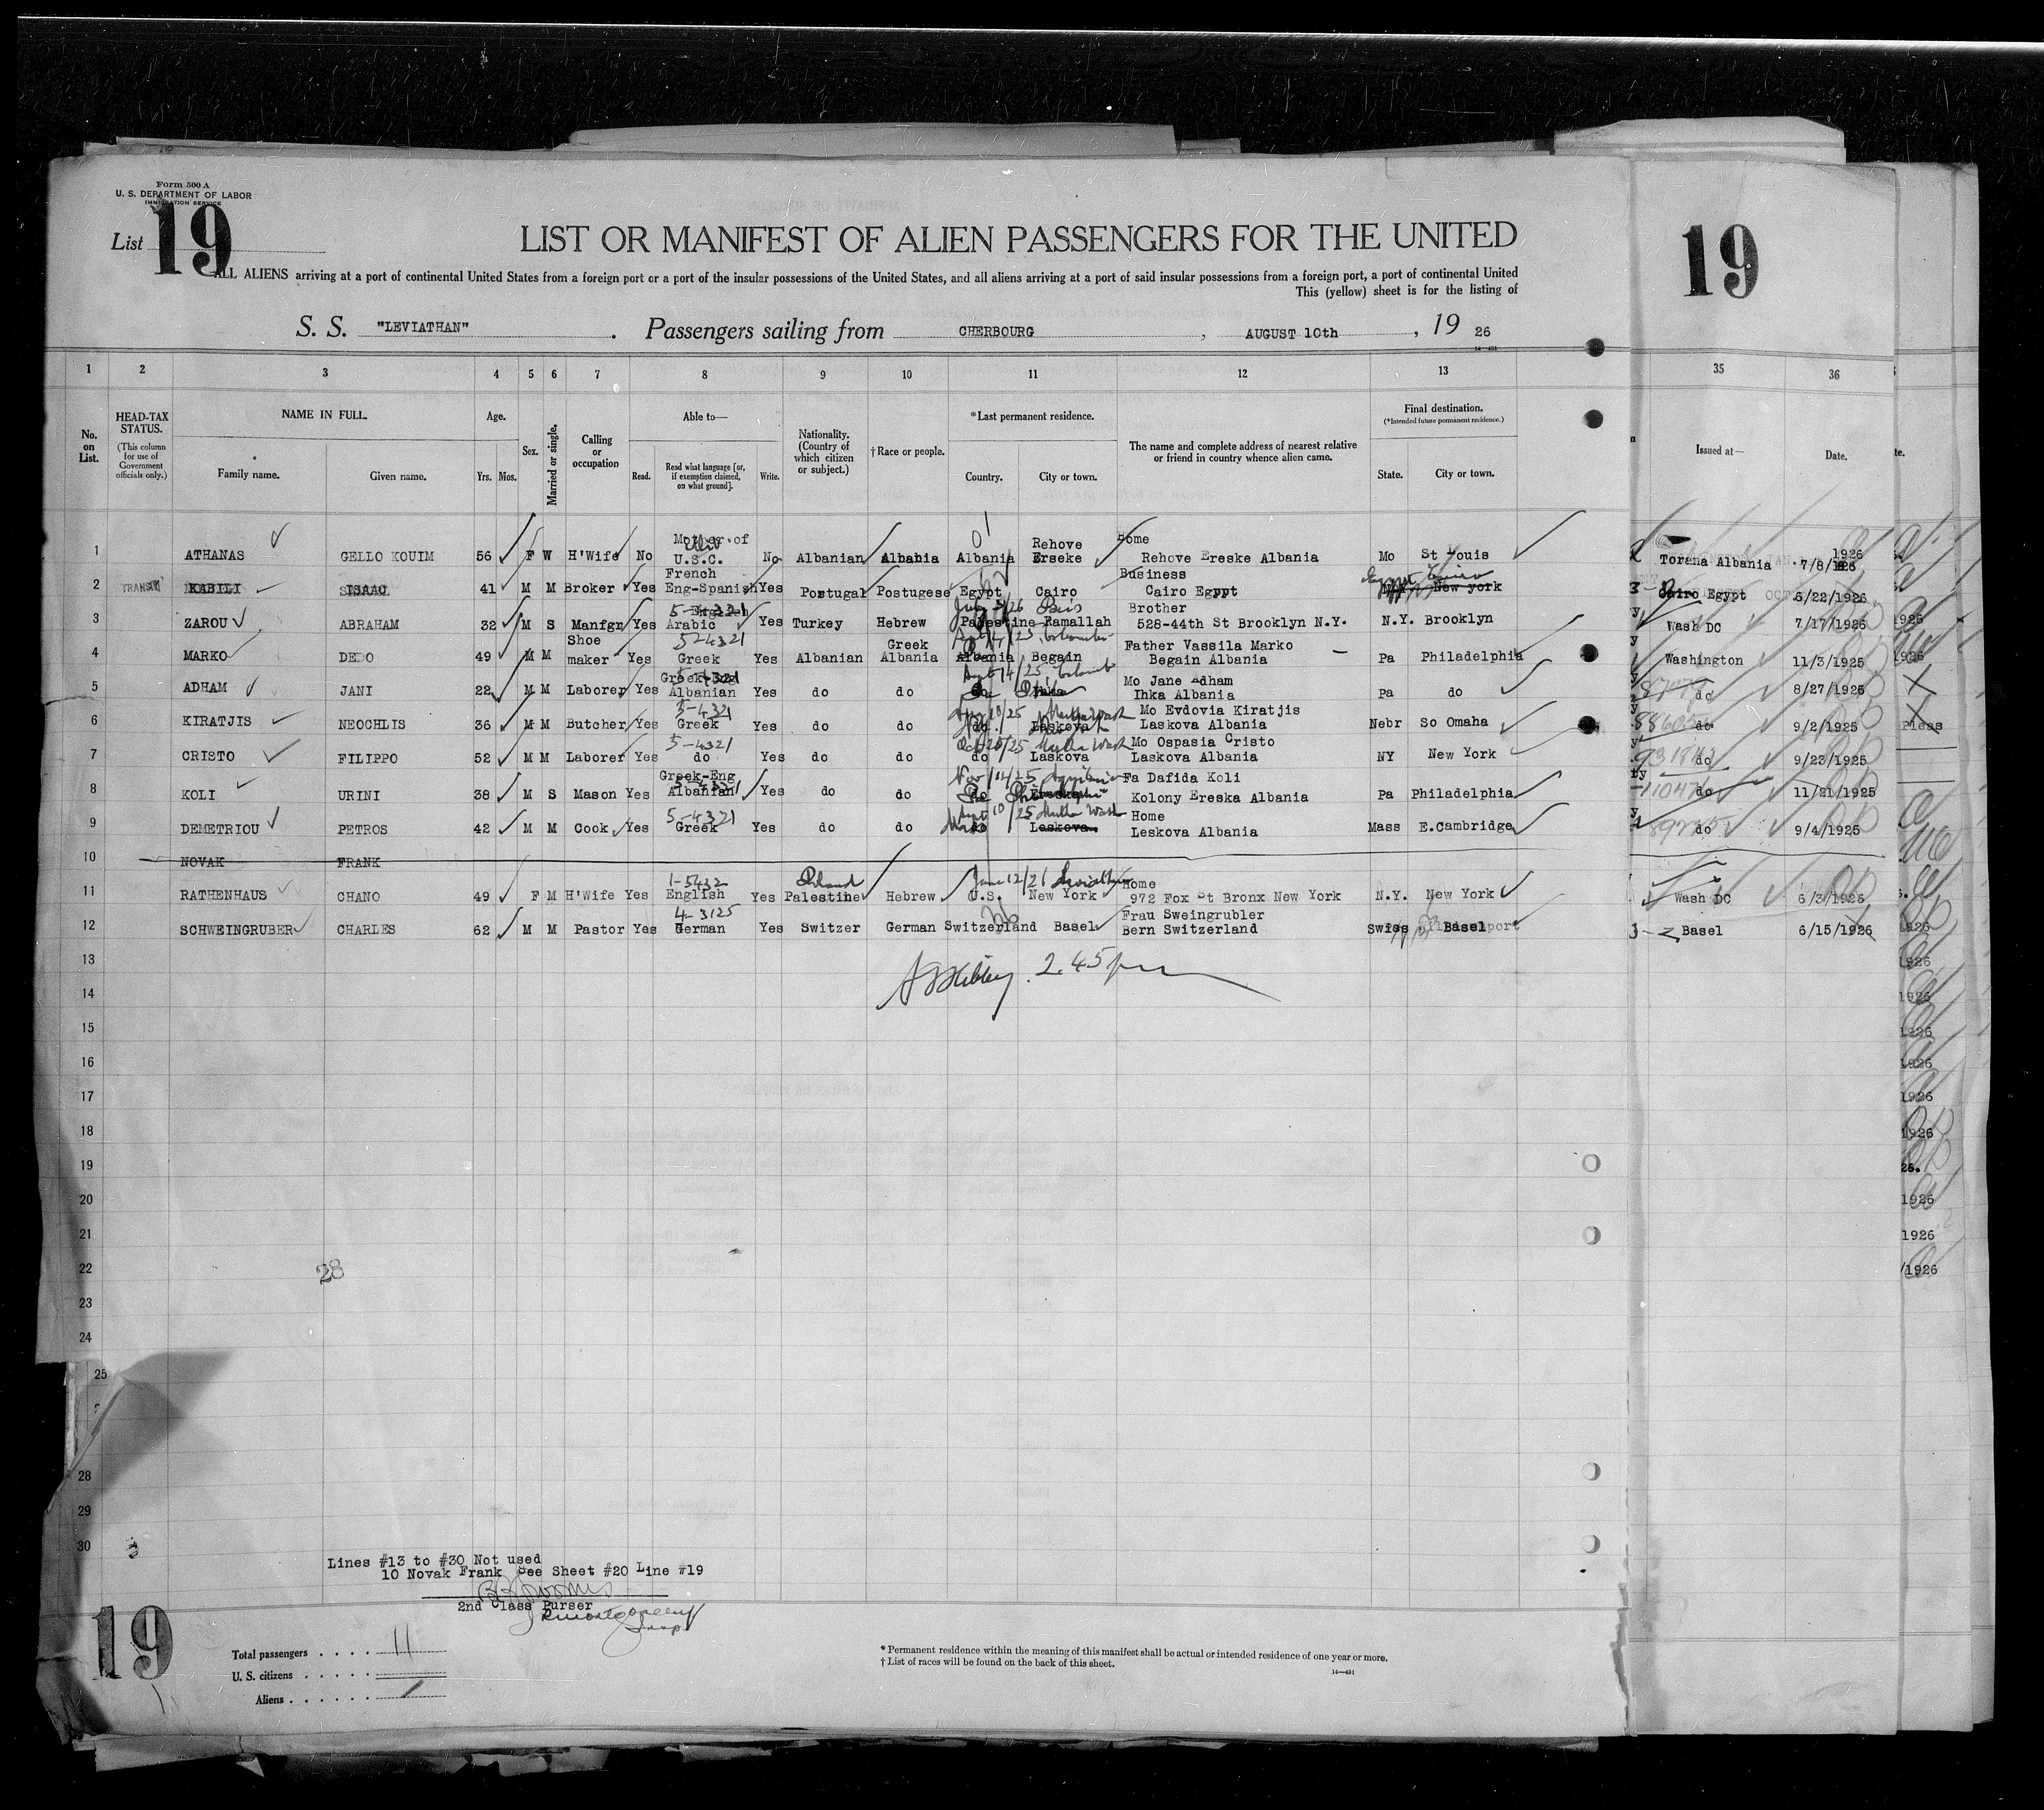 Form 500 A
U. S. DEPARTMENT OF LABOR
IMMIGRATION SERVICE
List 19
19
LIST OR MANIFEST OF ALIEN PASSENGERS FOR THE UNITED
ALL ALIENS arriving at a port of continental United States from a foreign port or a port of the insular possessions of the United States, and all aliens arriving at a port of said insular possessions from a foreign port, a port of continental United
This (yellow) sheet is for the listing of
S. S. "LEVIATHAN" . Passengers sailing from CHERBOURG , AUGUST 10th , 19 26
14—431
1 2 3 4 5 6 7 8 9 10 11 12 13 35 36
No. on List.
HEAD-TAX STATUS.
(This column for use of Government officials only.)
NAME IN FULL.
Family name. Given name.
Age.
Yrs. Mos.
Sex.
Married or single.
Calling or occupation
Able to—
Read. Read what language [or, if exemption claimed, on what ground]. Write.
Nationality. (Country of which citizen or subject.)
† Race or people.
* Last permanent residence.
Country. City or town.
The name and complete address of nearest relative or friend in country whence alien came.
Final destination.
(*Intended future permanent residence.)
State. City or town.
Issued at—
Date.
1 ATHANAS GELLO KOUIM 56 F W H'Wife No Mother of U.S.C. No Albanian Albania Albania Rehove Erseke Home Rehove Ereske Albania Mo St Louis Torana Albania 7/8/1926
2 TRANSIT KABILI ISAAC 41 M M Broker Yes French Eng-Spanish Yes Portugal Postugese Egypt Cairo Business Cairo Egypt New york Cairo Egypt 6/22/1926
3 ZAROU ABRAHAM 32 M S Manfgr Yes 5-4321 Arabic Yes Turkey Hebrew Palestine Ramallah Brother 528-44th St Brooklyn N.Y. N.Y. Brooklyn Wash DC 7/17/1926
4 MARKO DEDO 49 M M Shoe maker Yes 5-4321 Greek Yes Albanian Greek Albania Albania Begain Father Vassila Marko Begain Albania Pa Philadelphia Washington 11/3/1925
5 ADHAM JANI 22 M M Laborer Yes Greek-Eng Albanian Yes do do do Ihka Mo Jane Adham Ihka Albania Pa do do 8/27/1925
6 KIRATJIS NEOCHLIS 36 M M Butcher Yes 5-4321 Greek Yes do do do Laskova Mo Evdovia Kiratjis Laskova Albania Nebr So Omaha do 9/2/1925
7 CRISTO FILIPPO 52 M M Laborer Yes 5-4321 do Yes do do do Laskova Mo Ospasia Cristo Laskova Albania NY New York do 9/23/1925
8 KOLI URINI 38 M S Mason Yes Greek-Eng Albanian Yes do do do Ereska Fa Dafida Koli Kolony Ereska Albania Pa Philadelphia do 11/21/1925
9 DEMETRIOU PETROS 42 M M Cook Yes 5-4321 Greek Yes do do do Leskova Home Leskova Albania Mass E.Cambridge do 9/4/1925
10 NOVAK FRANK
11 RATHENHAUS CHANO 49 F M H'Wife Yes 1-5432 English Yes Poland Palestine Hebrew U.S. New York Home 972 Fox St Bronx New York N.Y. New York Wash DC 6/3/1926
12 SCHWEINGRUBER CHARLES 62 M M Pastor Yes 4-3125 German Yes Switzer German Switzerland Basel Frau Sweingrubler Bern Switzerland Swiss Basel Basel 6/15/1926
13 2.45 pm
14
15
16
17
18
19
20
21
22 28
23
24
25
28
29
30
Lines #13 to #30 Not used
10 Novak Frank See Sheet #20 Line #19
2nd Class Purser
19
Total passengers . . . . 11
U. S. citizens . . . . . .
Aliens . . . . . .
* Permanent residence within the meaning of this manifest shall be actual or intended residence of one year or more.
† List of races will be found on the back of this sheet.
14—431